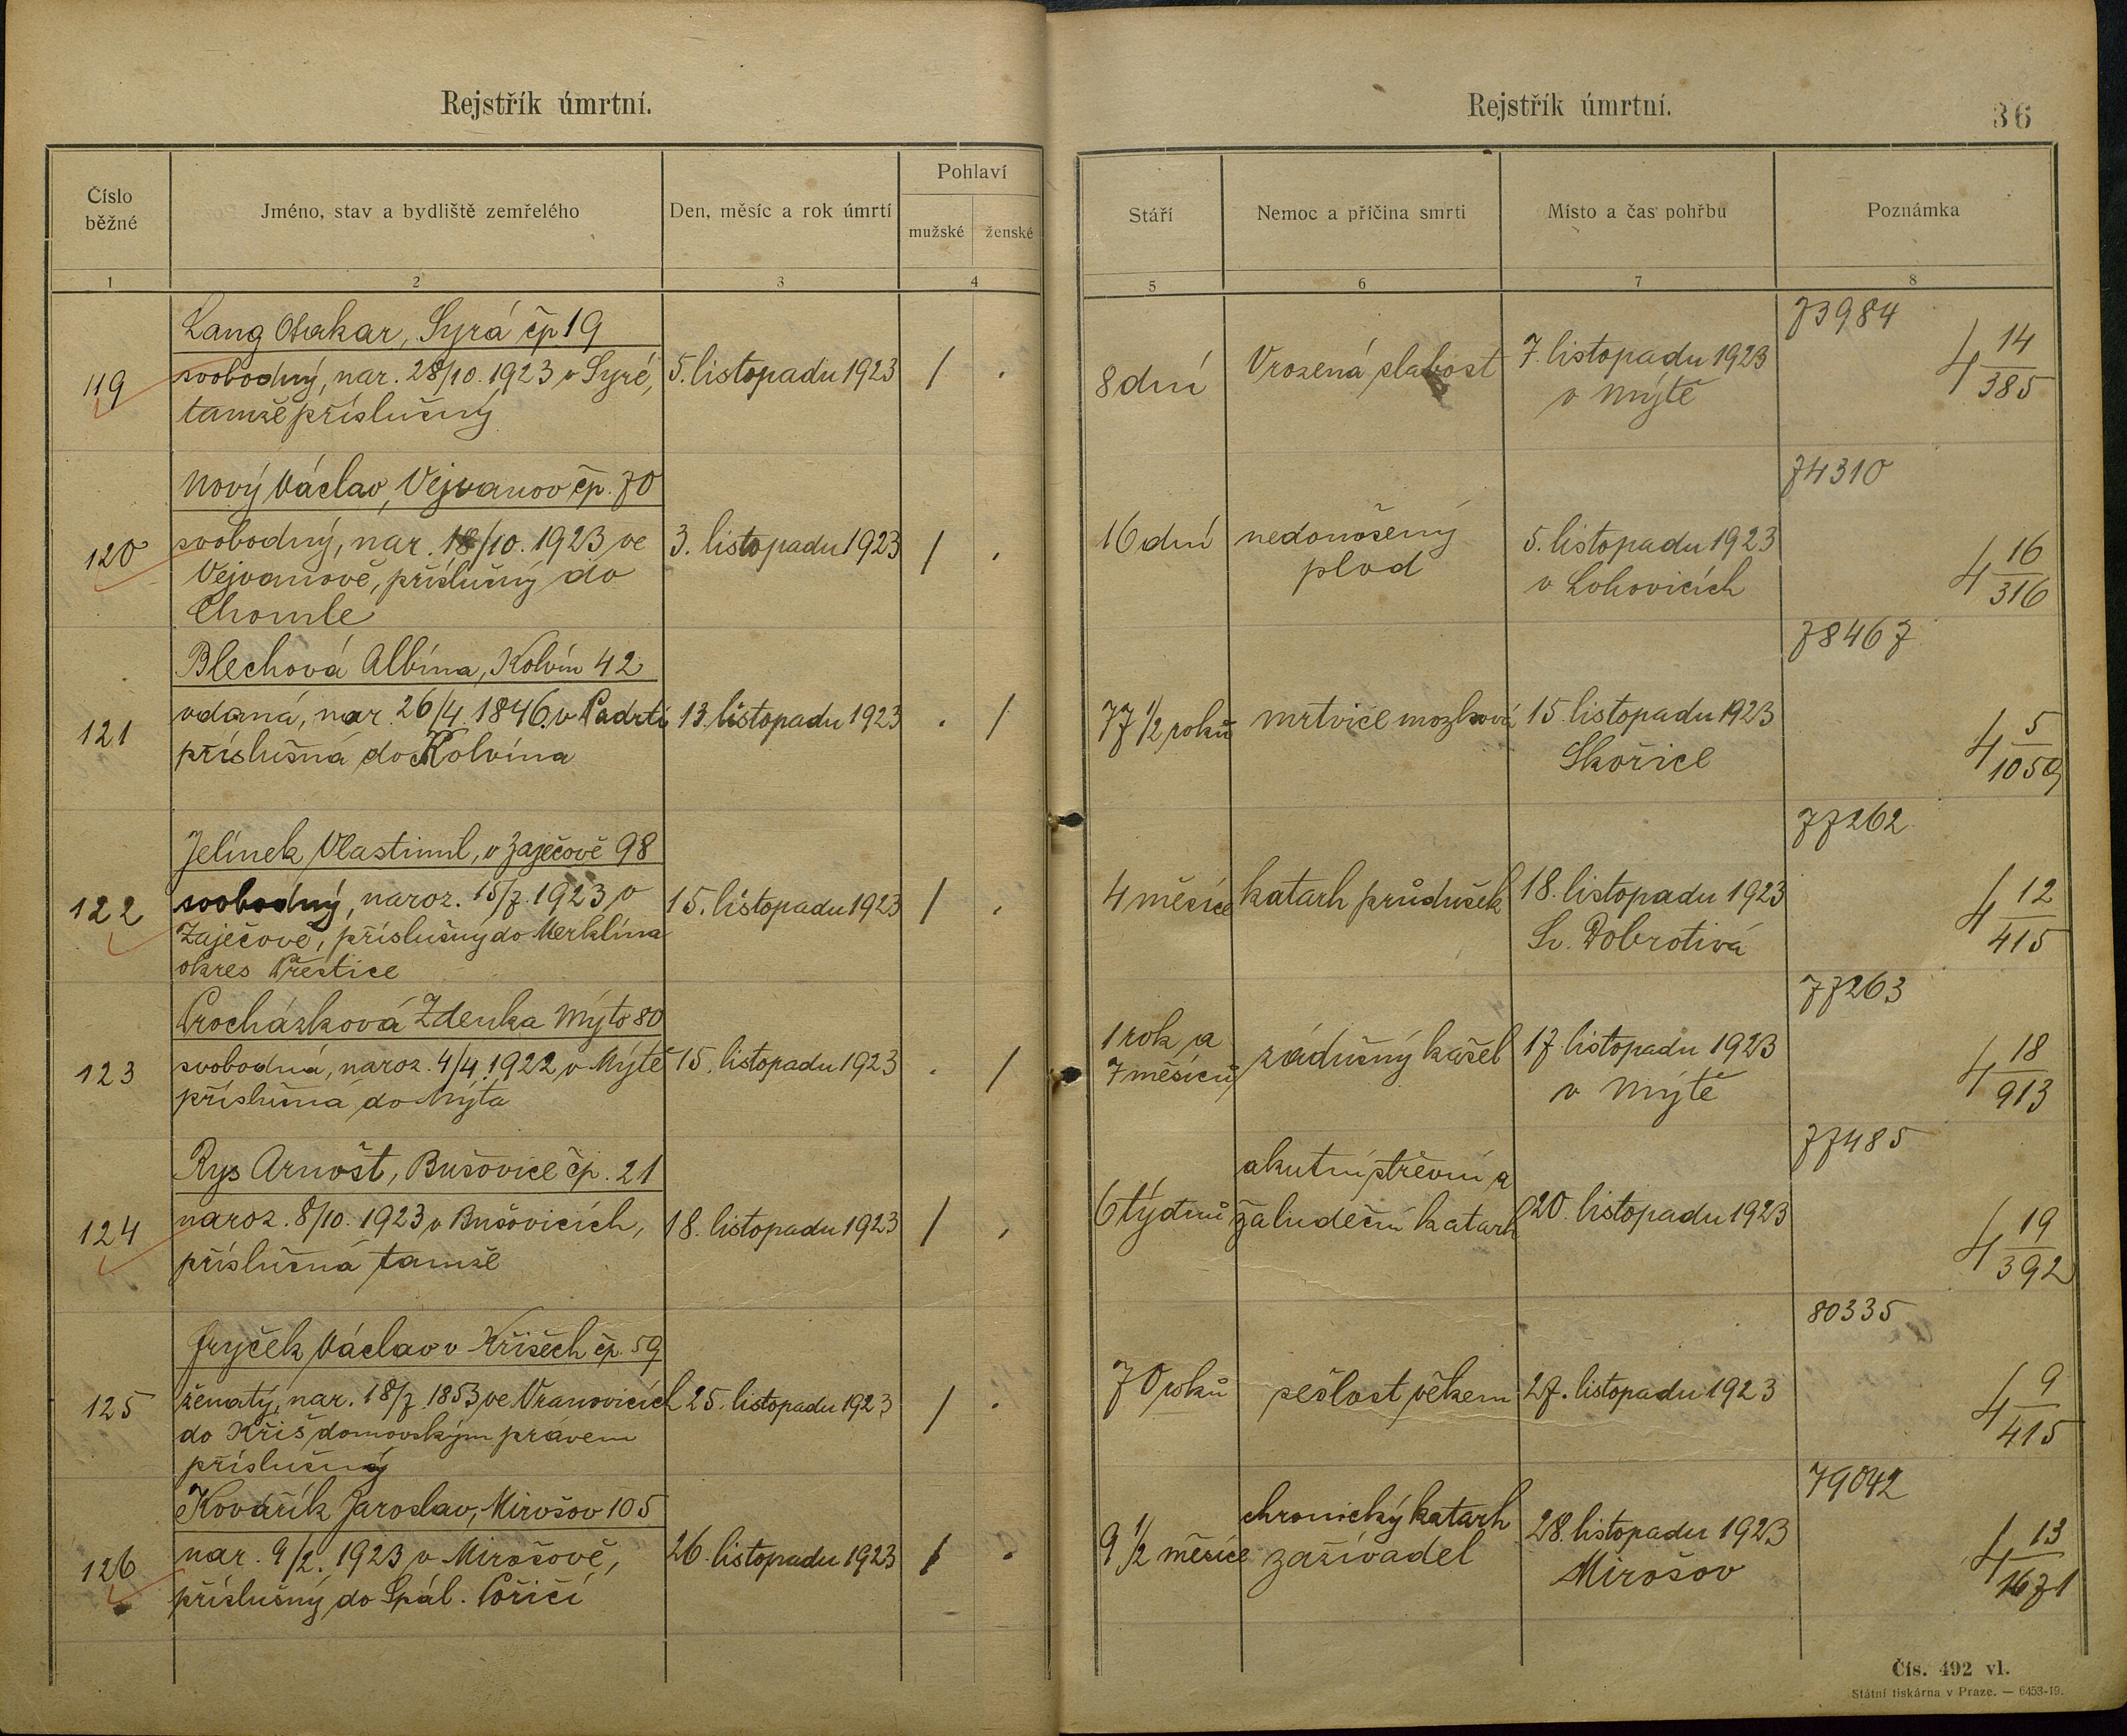 Rejstřík úmrtní.
Číslo běžné
Jméno, stav a bydliště zemřelého
Den, měsíc a rok úmrtí
Pohlaví
mužské
ženské
1
2
3
4
Lang Otakar, Syrá čp 19
119
svobodný, nar. 28/10. 1923 v Syré,
5. listopadu 1923
/
.
tamže příslušný
Nový Václav, Vejvanov čp. 70
120
svobodný, nar. 18/10. 1923 ve
3. listopadu 1923
/
.
Vejvanově, příslušný do
Chomle
Blechová Albína, Kolvín 42
121
vdaná, nar. 26/4. 1846. v Padrti
13. listopadu 1923
.
/
příslušná do Kolvína
Jelínek Vlastimil, v Zaječově 98
122
svobodný, naroz. 15/7. 1923 v
15. listopadu 1923
/
.
Zaječově, příslušný do Merklína
okres Přeštice
Procházková Zdenka Mýto 80
123
svobodná, naroz. 4/4. 1922 v Mýtě
15. listopadu 1923
.
/
příslušná do Mýta
Rys Arnošt, Bušovice čp. 21
124
naroz. 8/10. 1923 v Bušovicích,
18. listopadu 1923
/
.
příslušná tamže
Fryček Václav v Křišech čp. 59
125
ženatý, nar. 18/7 1853 ve Vranovicích
25. listopadu 1923
/
.
do Kříš domovským právem
příslušný
Kovářík Jaroslav, Mirošov 105
126
nar. 9/2. 1923 v Mirošově,
26. listopadu 1923
/
.
příslušný do Spál. Poříčí
Rejstřík úmrtní.
36
Stáří
Nemoc a příčina smrti
Místo a čas pohřbu
Poznámka
5
6
7
8
73984
8 dní
Vrozená slabost
7. listopadu 1923
v Mýtě
4 14/385
74310
16 dní
nedonošený
plod
5. listopadu 1923
v Lohovicích
4 16/316
78467
77 1/2 roků
mrtvice mozková
15. listopadu 1923
Skořice
4 5/1059
77262
4 měsíce
katarh průdušek
18. listopadu 1923
Sv. Dobrotivá
4 12/415
77263
1 rok a
7 měsíců
zádušný kašel
17. listopadu 1923
v Mýtě
4 18/913
77485
6 týdnů
akutní střevní a
žaludeční katarh
20. listopadu 1923
4 19/392
80335
70 roků
sešlost věkem
27. listopadu 1923
4 9/415
79042
9 1/2 měsíce
chronický katarh
zažívadel
28. listopadu 1923
Mirošov
4 13/1671
Čís. 492 vl.
Státní tiskárna v Praze. — 6453-19.